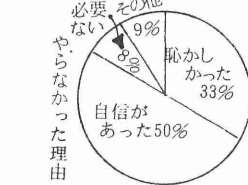 必要
ない
その他
9%
8%
恥かし
かった
33%
自信が
あった50%
やらなかった理由